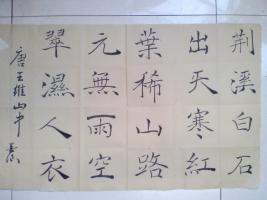 荆溪白石
出天寒紅
葉稀山路
元無雨空
翠濕人衣
唐王維山中